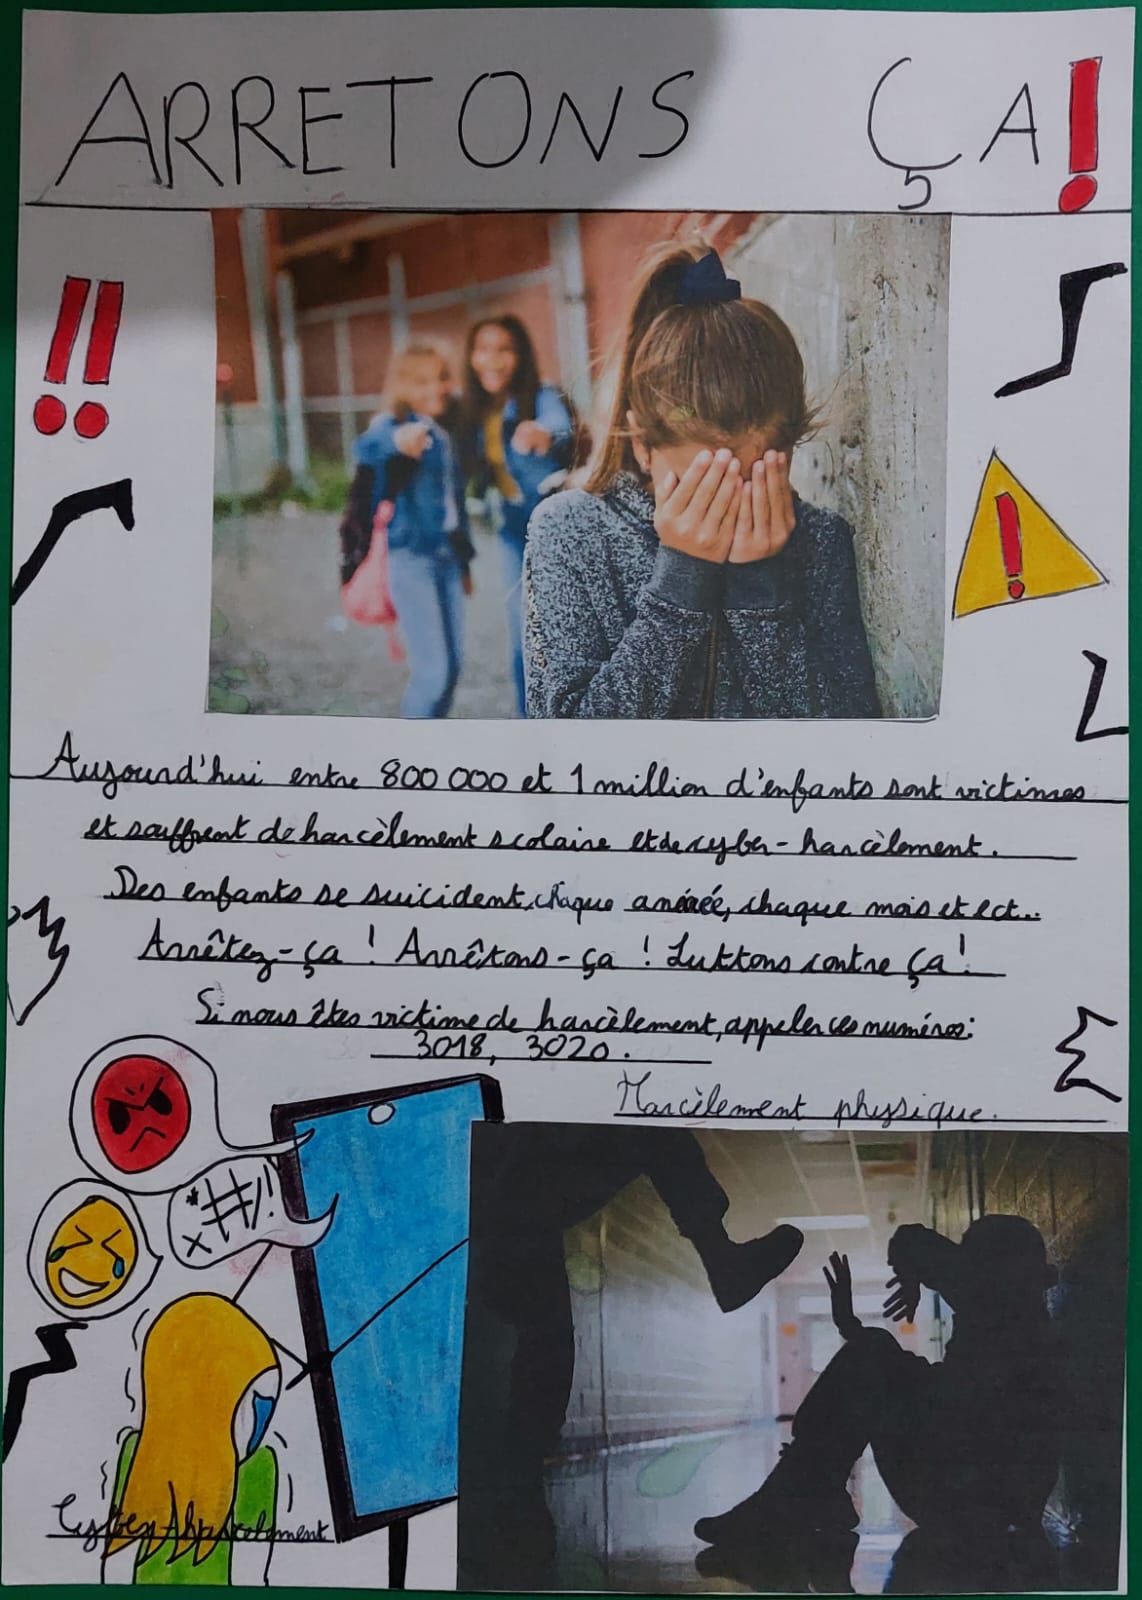 ARRETONS ÇA!
!!
!
Aujourd'hui entre 800 000 et 1 million d'enfants sont victimes
et souffrent de harcèlement scolaire et de cyber-harcèlement.
Des enfants se suicident, chaque année, chaque mois et ect..
Arrêtez-ça ! Arrêtons-ça ! Luttons contre ça !
Si vous êtes victime de harcèlement, appeler ces numéros:
3018, 3020.
Harcèlement physique.
*#/!
x
Cyber Harcelement